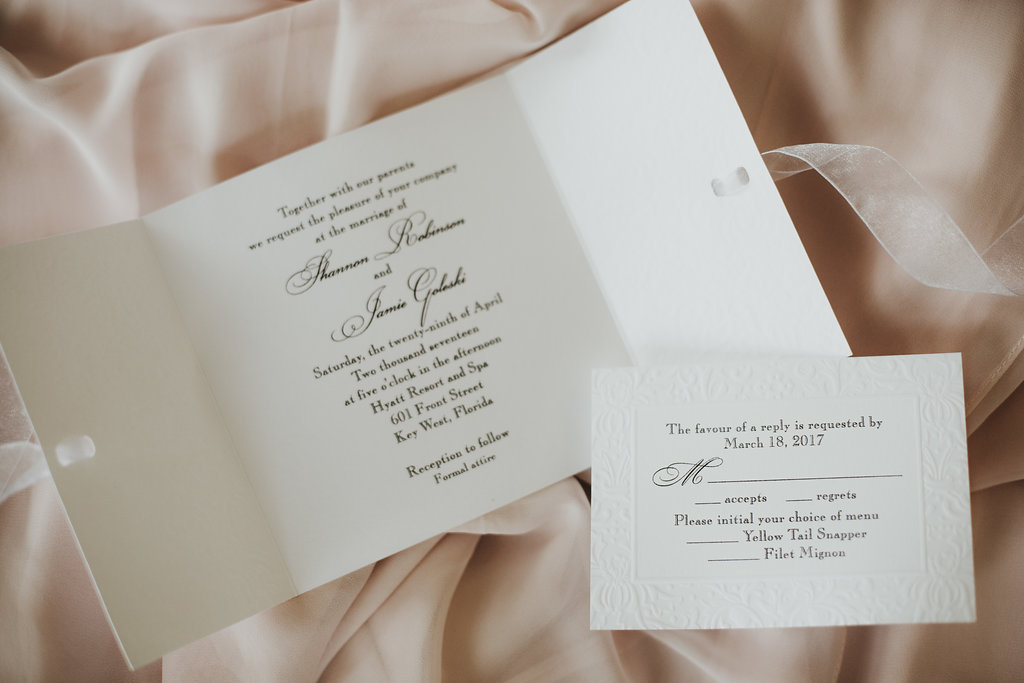 Together with our parents
we request the pleasure of your company
at the marriage of
Shannon Robinson
and
Jamie Goleski
Saturday, the twenty-ninth of April
Two thousand seventeen
at five o'clock in the afternoon
Hyatt Resort and Spa
601 Front Street
Key West, Florida
Reception to follow
Formal attire
The favour of a reply is requested by
March 18, 2017
M____________________
____ accepts ____ regrets
Please initial your choice of menu
________ Yellow Tail Snapper
________ Filet Mignon